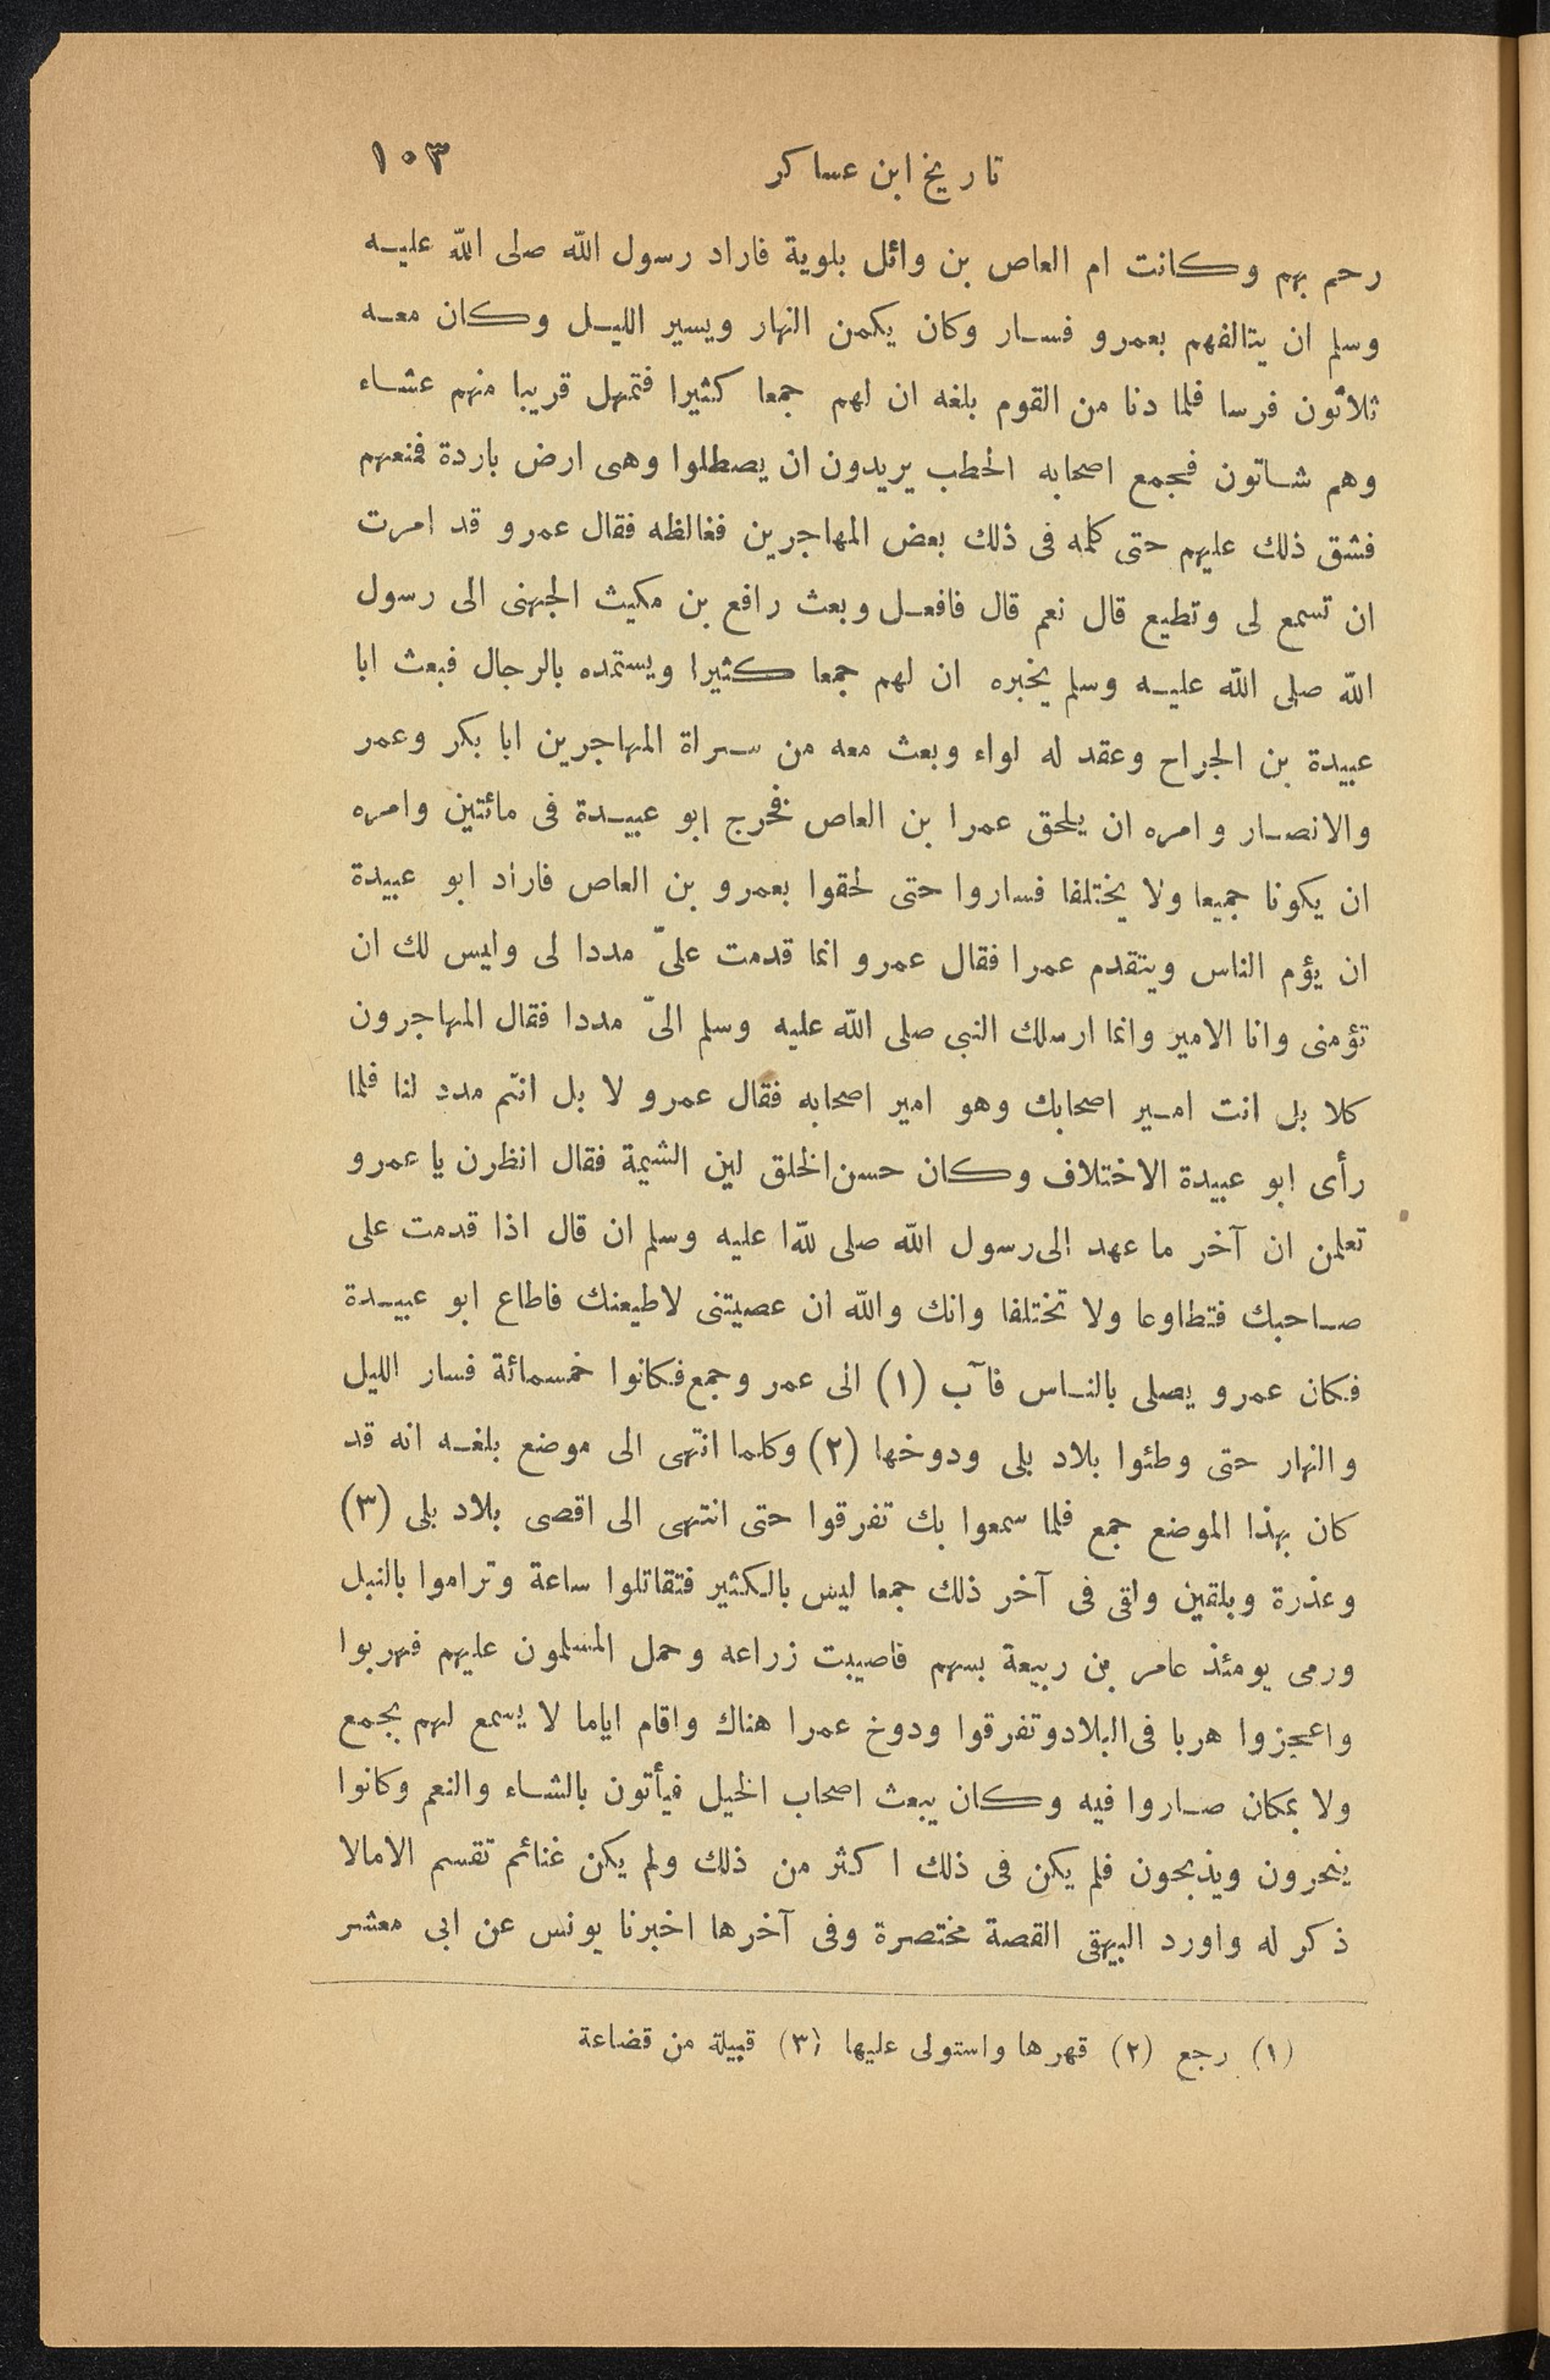 تاريخ ابن عساكر ١٠٣
رحم بهم وكانت ام العاص بن وائل بلوية فاراد رسول الله صلى الله عليه
وسلم ان يتالفهم بعمرو فسار وكان يكمن النهار ويسير الليل وكان معه
ثلاثون فرسا فلما دنا من القوم بلغه ان لهم جمعا كثيرا فتمهل قريبا منهم عشاء
وهم شاتون فجمع اصحابه الحطب يريدون ان يصطلوا وهى ارض باردة فمنعهم
فشق ذلك عليهم حتى كلمه فى ذلك بعض المهاجرين فغالظه فقال عمرو قد امرت
ان تسمع لى وتطيع قال نعم قال فافعل وبعث رافع بن مكيث الجهنى الى رسول
الله صلى الله عليه وسلم يخبره ان لهم جمعا كثيرا ويستمده بالرجال فبعث ابا
عبيدة بن الجراح وعقد له لواء وبعث معه من سراة المهاجرين ابا بكر وعمر
والانصار وامره ان يلحق عمرا بن العاص فخرج ابو عبيدة فى مائتين وامره
ان يكونا جميعا ولا يختلفا فساروا حتى لحقوا بعمرو بن العاص فاراد ابو عبيدة
ان يؤم الناس ويتقدم عمرا فقال عمرو انما قدمت علىّ مددا لى وليس لك ان
تؤمنى وانا الامير وانما ارسلك النبى صلى الله عليه وسلم الىّ مددا فقال المهاجرون
كلا بل انت امير اصحابك وهو امير اصحابه فقال عمرو لا بل انتم مدد لنا فلما
رأى ابو عبيدة الاختلاف وكان حسن الخلق لين الشيمة فقال انظرن يا عمرو
تعلمن ان آخر ما عهد الى رسول الله صلى لله‍ّا عليه وسلم ان قال اذا قدمت على
صاحبك فتطاوعا ولا تختلفا وانك والله ان عصيتنى لاطيعنك فاطاع ابو عبيدة
فكان عمرو يصلى بالناس فآب (١) الى عمر وجمع فكانوا خمسمائة فسار الليل
والنهار حتى وطئوا بلاد بلى ودوخها (٢) وكلما انتهى الى موضع بلغه انه قد
كان بهذا الموضع جمع فلما سمعوا بك تفرقوا حتى انتهى الى اقصى بلاد بلى (٣)
وعذرة وبلقين ولقى فى آخر ذلك جمعا ليس بالكثير فتقاتلوا ساعة وتراموا بالنبل
ورمى يومئذ عامر بن ربيعة بسهم فاصيبت زراعه وحمل المسلمون عليهم فهربوا
واعجزوا هربا فى البلاد وتفرقوا ودوخ عمرا هناك واقام اياما لا يسمع لهم بجمع
ولا بمكان صاروا فيه وكان يبعث اصحاب الخيل فيأتون بالشاء والنعم وكانوا
ينحرون ويذبحون فلم يكن فى ذلك اكثر من ذلك ولم يكن غنائم تقسم الامالا
ذكر له واورد البيهقى القصة مختصرة وفى آخرها اخبرنا يونس عن ابى معشر
(١) رجع (٢) قهرها واستولى عليها (٣) قبيلة من قضاعة